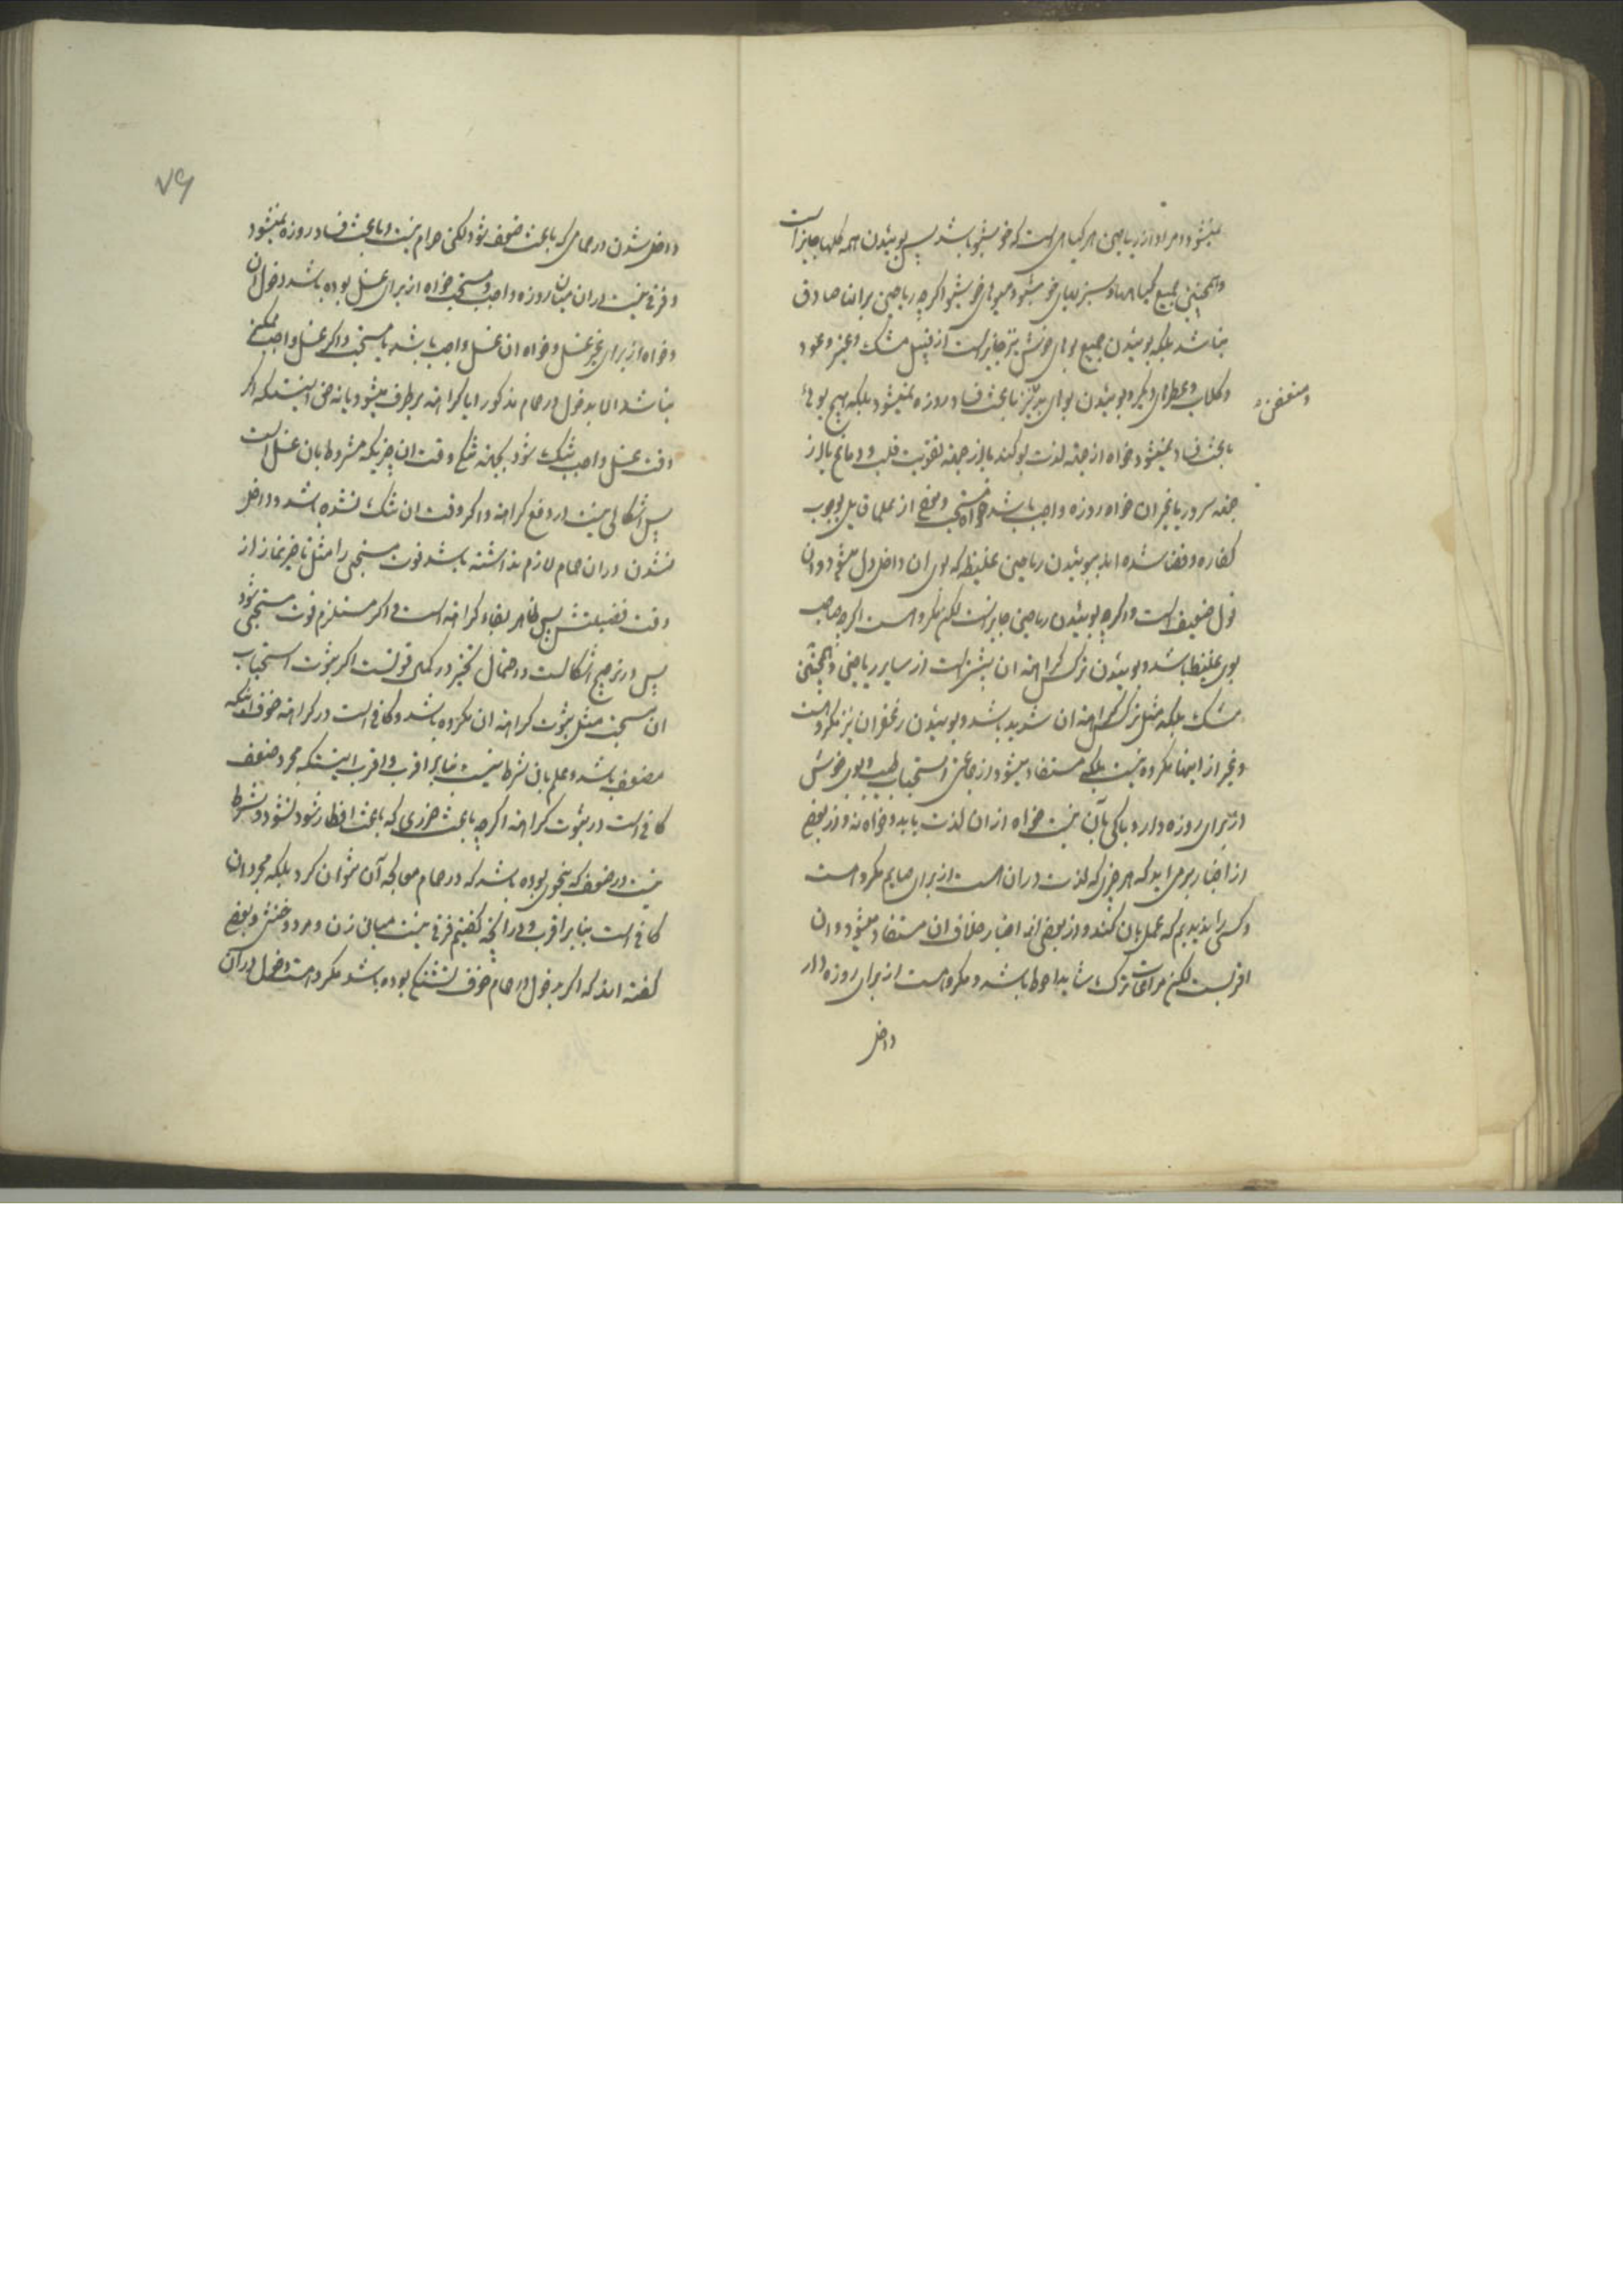 نمیشود و مراد از ریاحین هر کیاهی است که خوشبو باشد پس بوئیدن همه کلها جایز است
و همچنین جمیع کیاهها و سبزیهای خوشبو و میوهای خوشبو اکرچه ریاحین بر انها صادق
نباشد بلکه بوئیدن جمیع بوهای خوش نیز جایز است از قبیل مشک و عنبر و عود
و کلاب و عطرهای دیکر و بوئیدن بوهای بد نیز باعث فساد روزه نمیشود بلکه هیچ بوئی
و متعفن
باعث فساد نمیشود خواه از جهة لذت بو کند یا از جهة تقویت قلب و دماغ یا از
جهة سرور یا غیر ان خواه روزه واجب باشد خواه سنتی و بعضی از علما قایل بوجوب
کفاره و قضا شده اند ببوئیدن ریاحین غلیظه که بوی ان داخل دل میشود و ان
قول ضعیف است و اکرچه بوئیدن ریاحین جایز است لکن مکروه است اکرچه صاحب
بوی غلیظ باشد و بوئیدن نرکس کراهة ان بیشتر است از سایر ریاحین و همچنین
مشک بلکه مثل نرکس کراهة ان شدید باشد و بوئیدن زعفران نیز مکروه است
و غیر از اینها مکروه نیست بلکه مستفاد میشود از جماعتی استحباب طیب و بوی خوش
از برای روزه دار و باکی بآن نیست خواه از ان لذت یابد و خواه نه و از بعضی
از اخبار برمی اید که هر چیزی که لذت در ان است از برای صایم مکروه است
و کسی را ندیدیم که عمل بان کند و از بعضی از اخبار خلاف ان مستفاد میشود و ان
اقربست لکن مراعات ترک شاید احوط باشد و مکروه است از برای روزه دار
داخل
۷۹
داخل شدن در حمامی که باعث ضعف شود لکن حرام نیست و باعث فساد روزه نمیشود
و فرقی نیست در ان میان روزه واجب و سنتی خواه از برای غسل بوده باشد دخول ان
و خواه از برای غیر غسل و خواه ان غسل واجب باشد یا سنتی و اکر غسل واجب ممکن
نباشد الا بدخول در حمام مذکور ایا کراهة برطرف میشود یا نه حق اینست که اکر
وقت غسل واجب تنک شود بجهة تنکی وقت ان چیزیکه مشروط بان غسل است
پس اشکالی نیست در رفع کراهة و اکر وقت ان تنک نشده باشد و داخل
نشدن در ان حمام لازم نداشته باشد فوت مستحبی را مثل تاخیر نماز از
وقت فضیلتش پس ظاهر بقاء کراهة است و اکر مستلزم فوت مستحبی شود
پس در ترجیح اشکالست و احتمال تخییر در کمال قوتست اکر ثبوت استحباب
ان مستحب مثل ثبوت کراهة ان مکروه باشد و کافی است در کراهة خوف اینکه
مضعف باشد و علم بان شرط نیست بنابر اقرب و اقرب اینستکه مجرد ضعف
کافی است در ثبوت کراهة اکرچه باعث ضرری که باعث افطار شود نشود و شرط
نیست در ضعف که بنحوی بوده باشد که در حمام معالجه آن نتوان کرد بلکه مجرد ان
کافی است بنابر اقرب و در انچه کفتیم فرقی نیست میان زن و مرد و خنثی و بعضی
کفته اند که اکر بدخول در حمام خوف تشنج بوده باشد مکروه است دخول در آن